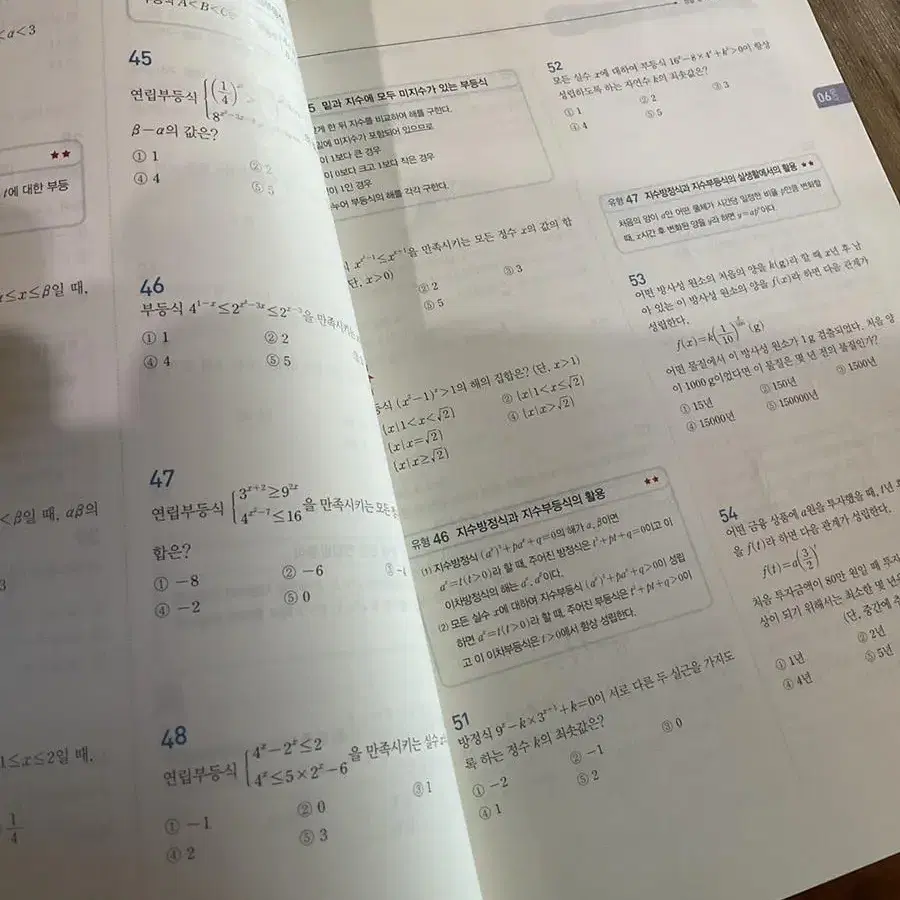 부등식 A<B<C는
<α<3
★★
에 대한 부등
≤x≤β일 때,
<β일 때, αβ의
3
1≤x≤2일 때,
1/4
45
연립부등식 {(1/4)
β-α의 값은?
① 1
② 2
④ 4
⑤ 5
46
부등식 4^(1-x)≤2^(x²-3x)≤2^(x-3)을 만족시키는
① 1
② 2
④ 4
⑤ 5
47
연립부등식 {3^(x+2)≥9^(2x)
4^(x²-7)≤16 을 만족시키는 모든
합은?
① -8
② -6
④ -2
⑤ 0
48
연립부등식 {4^x-2^x≤2
4^x≤5×2^x-6 을 만족시키는 실수
① -1
② 0
③ 1
④ 2
⑤ 3
5 밑과 지수에 모두 미지수가 있는 부등식
한 뒤 지수를 비교하여 해를 구한다.
에 미지수가 포함되어 있으므로
이 1보다 큰 경우
이 0보다 크고 1보다 작은 경우
이 1인 경우
누어 부등식의 해를 각각 구한다.
을 만족시키는 모든 정수 x의 값의 합
단, x>0)
② 2
③ 3
⑤ 5
등식 (x²-1)^x>1의 해의 집합은? (단, x>1)
{x|1<x<√2}
② {x|1<x≤√2}
{x|x=√2}
④ {x|x>√2}
{x|x≥√2}
유형 46 지수방정식과 지수부등식의 활용 ★★
(1) 지수방정식 (a^x)²+pa^x+q=0의 해가 α, β이면
a^x=t(t>0)라 할 때, 주어진 방정식은 t²+pt+q=0이고 이
이차방정식의 해는 a^α, a^β이다.
(2) 모든 실수 x에 대하여 지수부등식 (a^x)²+pa^x+q>0이 성립
하면 a^x=t(t>0)라 할 때, 주어진 부등식은 t²+pt+q>0이
고 이 이차부등식은 t>0에서 항상 성립한다.
51
방정식 9^x-k×3^(x+1)+k=0이 서로 다른 두 실근을 가지도
록 하는 정수 k의 최솟값은?
① -2
② -1
③ 0
④ 1
⑤ 2
52
모든 실수 x에 대하여 부등식 16^x-8×4^x+k²>0이 항상
성립하도록 하는 자연수 k의 최솟값은?
① 1
② 2
③ 3
④ 4
⑤ 5
06
유형 47 지수방정식과 지수부등식의 실생활에서의 활용 ★★
처음의 양이 a인 어떤 물체가 시간당 일정한 비율 p만큼 변화할
때, x시간 후 변화된 양을 y라 하면 y=ap^x이다.
53
어떤 방사성 원소의 처음의 양을 k(g)라 할 때 x년 후 남
아 있는 이 방사성 원소의 양을 f(x)라 하면 다음 관계가
성립한다.
어떤 물질에서 이 방사성 원소가 1 g 검출되었다. 처음 양
이 1000 g이었다면 이 물질은 몇 년 전의 물질인가?
① 15년
② 150년
③ 1500년
④ 15000년
⑤ 150000년
54
어떤 금융 상품에 a원을 투자했을 때, t년
을 f(t)라 하면 다음 관계가 성립한다.
f(t)=a(3/2)^t
처음 투자금액이 80만 원일 때 투자
상이 되기 위해서는 최소한 몇 년
(단, 중간에
① 1년
② 2년
④ 4년
⑤ 5년